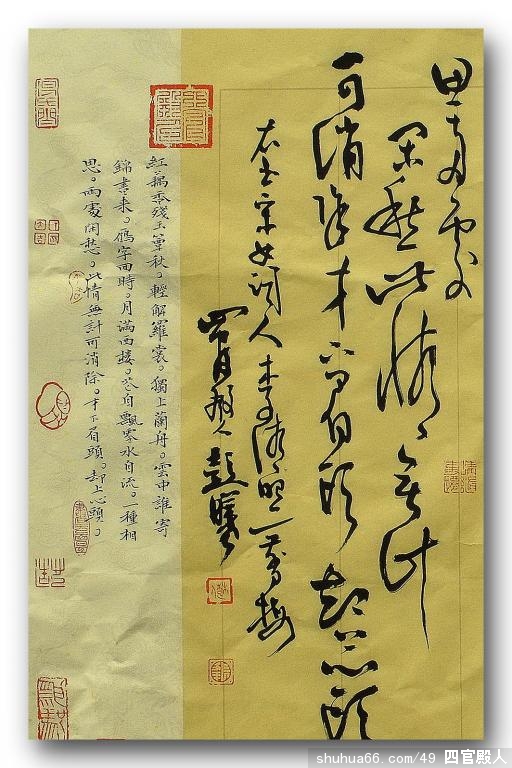 思兩處
閑愁此情無计
可消除才下眉頭却上心頭
右書宋女詞人李清照一剪梅
四官殿人彭
紅藕香殘玉簟秋。輕解羅裳。獨上蘭舟。雲中誰寄
錦書來。鴈字回時。月滿西樓。花自飄零水自流。一種相
思。兩處閑愁。此情無計可消除。才下眉頭。却上心頭。
shuhua66.com/49 四官殿人